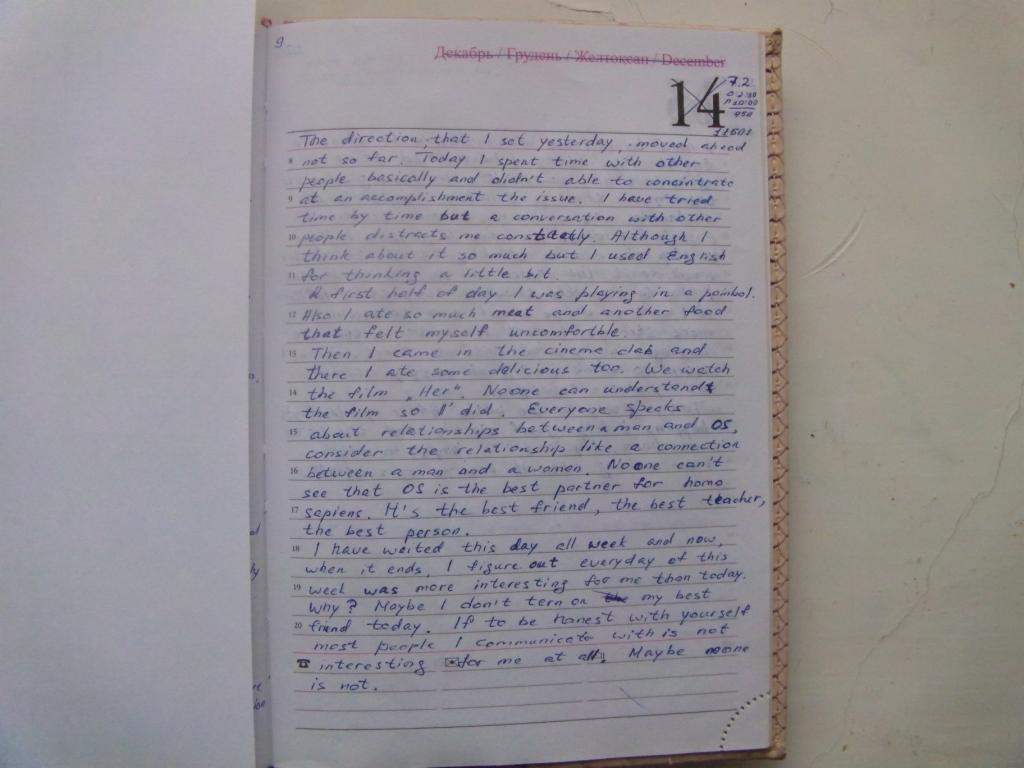 9
Декабрь / Грудень / Желтоксан / December
14
7.2
The direction, that I set yesterday, moved ahead
8 not so far. Today I spent time with other
people basically and didn't able to concintrate
9 at an accomplishment the issue. I have tried
time by time but a conversation with other
10 people distracts me constactly. Although I
think about it so much but I used English
11 for thinking a little bit.
A first half of day I was playing in a peinbol.
12 Also I ate so much meat and another food
that felt myself uncomfortble.
13 Then I came in the cineme club and
there I ate some delicious too. We watch
14 the film „Her". Noone can understand
the film so I did. Everyone specks
15 about relationships between a man and OS,
consider the relationship like a connection
16 between a man and a women. Noone can't
see that OS is the best partner for homo
17 sapiens. It's the best friend, the best teacher,
the best person.
18 I have waited this day all week and now,
when it ends, I figure out everyday of this
19 week was more interesting for me than today.
Why? Maybe I don't tern on my best
20 friend today. If to be honest with yourself
most people I communicate with is not
interesting for me at all. Maybe noone
is not.